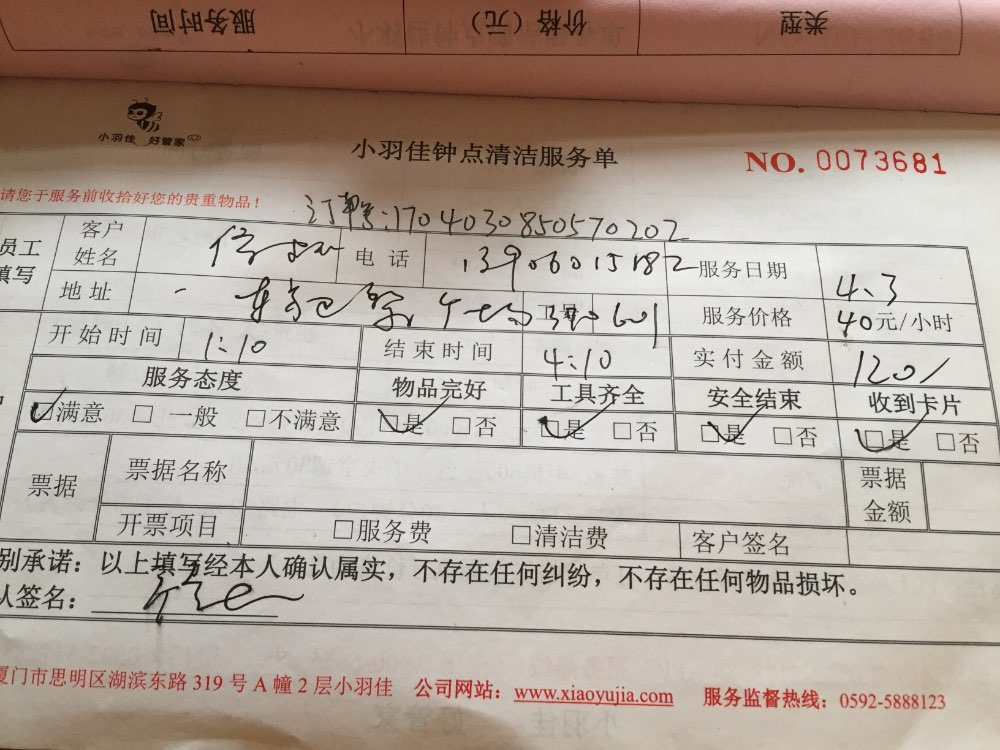 类型 价格（元） 服务时间
小羽佳 好管家
小羽佳钟点清洁服务单 NO. 0073681
请您于服务前收拾好您的贵重物品！
170403085057020
员工填写 客户姓名 电话 13906015182 服务日期 4.3
地址 601 服务价格 40元/小时
开始时间 1:10 结束时间 4:10 实付金额 120/
服务态度 物品完好 工具齐全 安全结束 收到卡片
☑满意 □一般 □不满意 ☑是 □否 ☑是 □否 ☑是 □否 ☑是 □否
票据 票据名称 票据金额
开票项目 □服务费 □清洁费 客户签名
别承诺：以上填写经本人确认属实，不存在任何纠纷，不存在任何物品损坏。
认签名：
厦门市思明区湖滨东路 319 号 A 幢 2 层小羽佳 公司网站：www.xiaoyujia.com 服务监督热线：0592-5888123